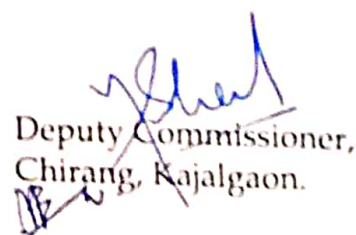 Deputy Commissioner,
Chirang, Kajalgaon.